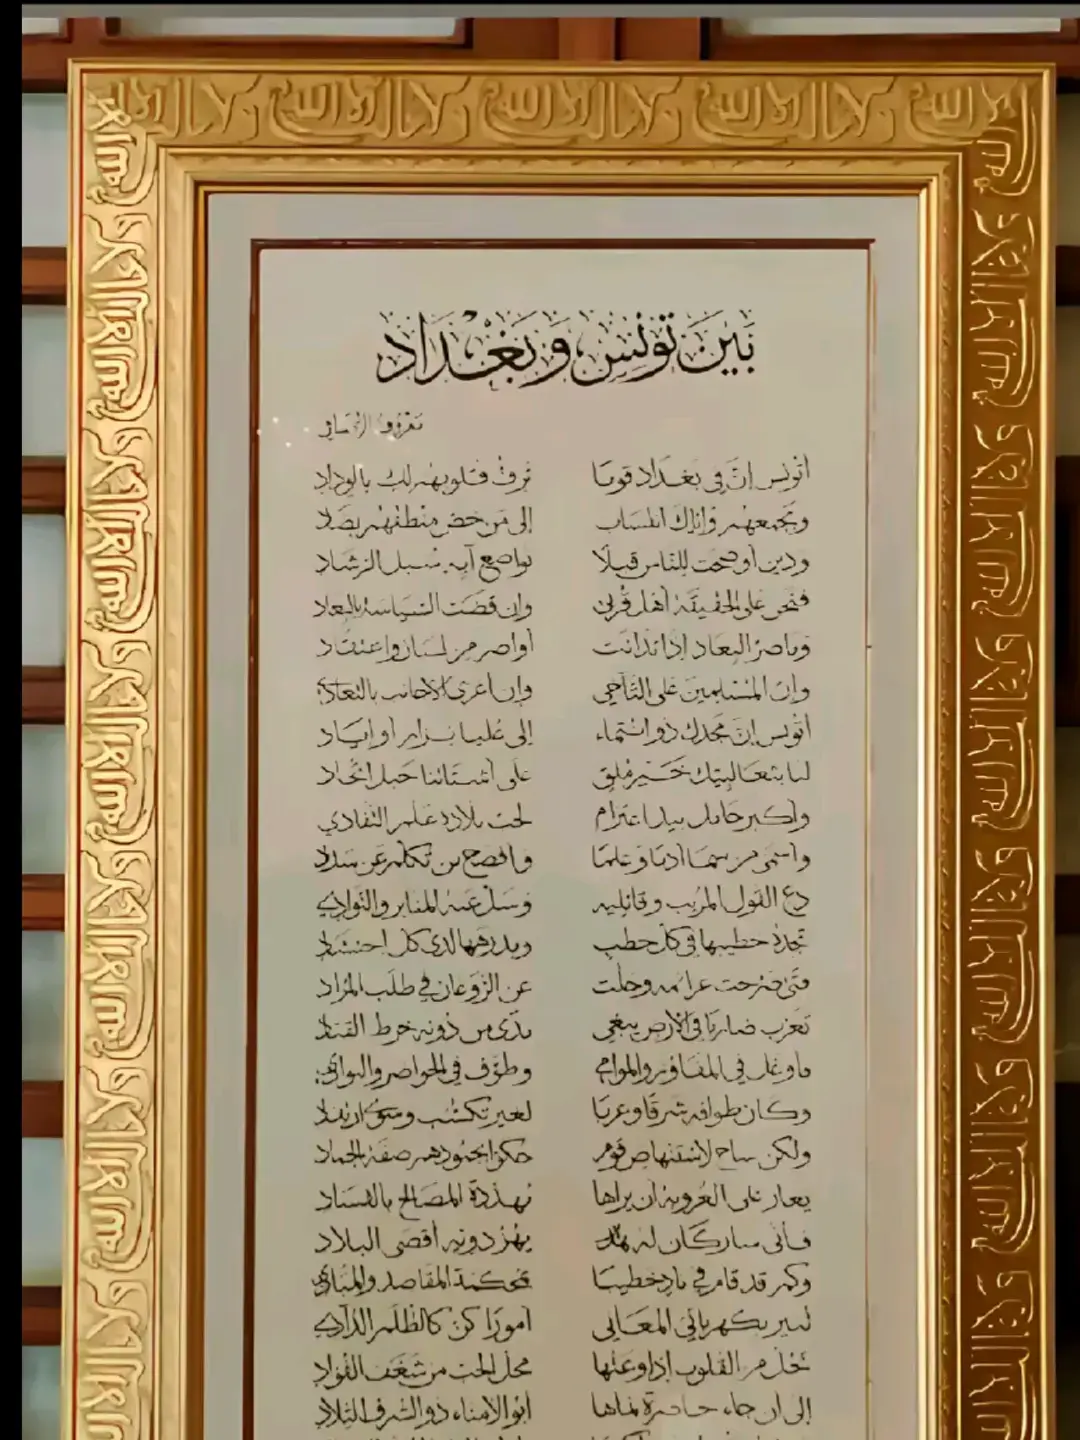 بَيْنَ تُونِس وَبَغْدَاد
مَعْرُوف الرُّصَافِي
أتونس إنّ في بَغداد قومًا ترفّ قلوبهم لك بالوداد
ويجمعهم وإياك انتساب إلى مَن خصّ منطقهم بضاد
ودين أوضحت للناس قبلًا نواصع آيه سُبل الرّشاد
فنحن على الحقيقة أهل قربى وإن قضت السياسة بالبعاد
وما ضرّ البعاد إذا تدانت أواصر من لسان واعتقاد
وإن المسلمين على التآخي وإن أغرى الأجانب بالتعادي
أتونس إنّ مجدك ذو انتماء إلى عليا نزار أو إياد
لنا بثعالبيّك خير ملقٍ على أشتاتنا حبل اتحاد
وأكبر حامل بيد اعتزام لحبّ بلاده علم التفادي
وأسمى من سما أدبًا وعلمًا وأفصح من تكلّم عن سداد
دع القول المريب وقائليه وسل عنه المنابر والنوادي
تجده خطيبها في كل خطب ومدرهها لدى كل احتشاد
فتى صرحت عزائمه وجلّت عن الروغان في طلب المراد
تغرّب ضاربًا في الأرض يبغي مدى من دونه خرط القتاد
فأوغل في المفاوز والموامي وطوّف في الحواضر والبوادي
وكان طوافه شرقًا وغربًا لغير تكسّب وسوى ارتفاد
ولكن ساح لاستنهاض قوم حكوا بجمودهم صفة الجماد
يغار على العروبة أن يراها مهدّدة المصالح بالفساد
فأنّى سار كان له يهزّ دونه أقصى البلاد
وكم قد قام في نادٍ خطيبًا بمحكمة المقاصد والمبادي
تنير بكهربائي المعاني أمورًا كنّ كالظلم الدآدي
تحلّ من القلوب إذا وعتها محلّ الحبّ من شغف الفؤاد
إلى أن جاء حاضرة نماها أبو الأمناء ذو الشرف التلاد